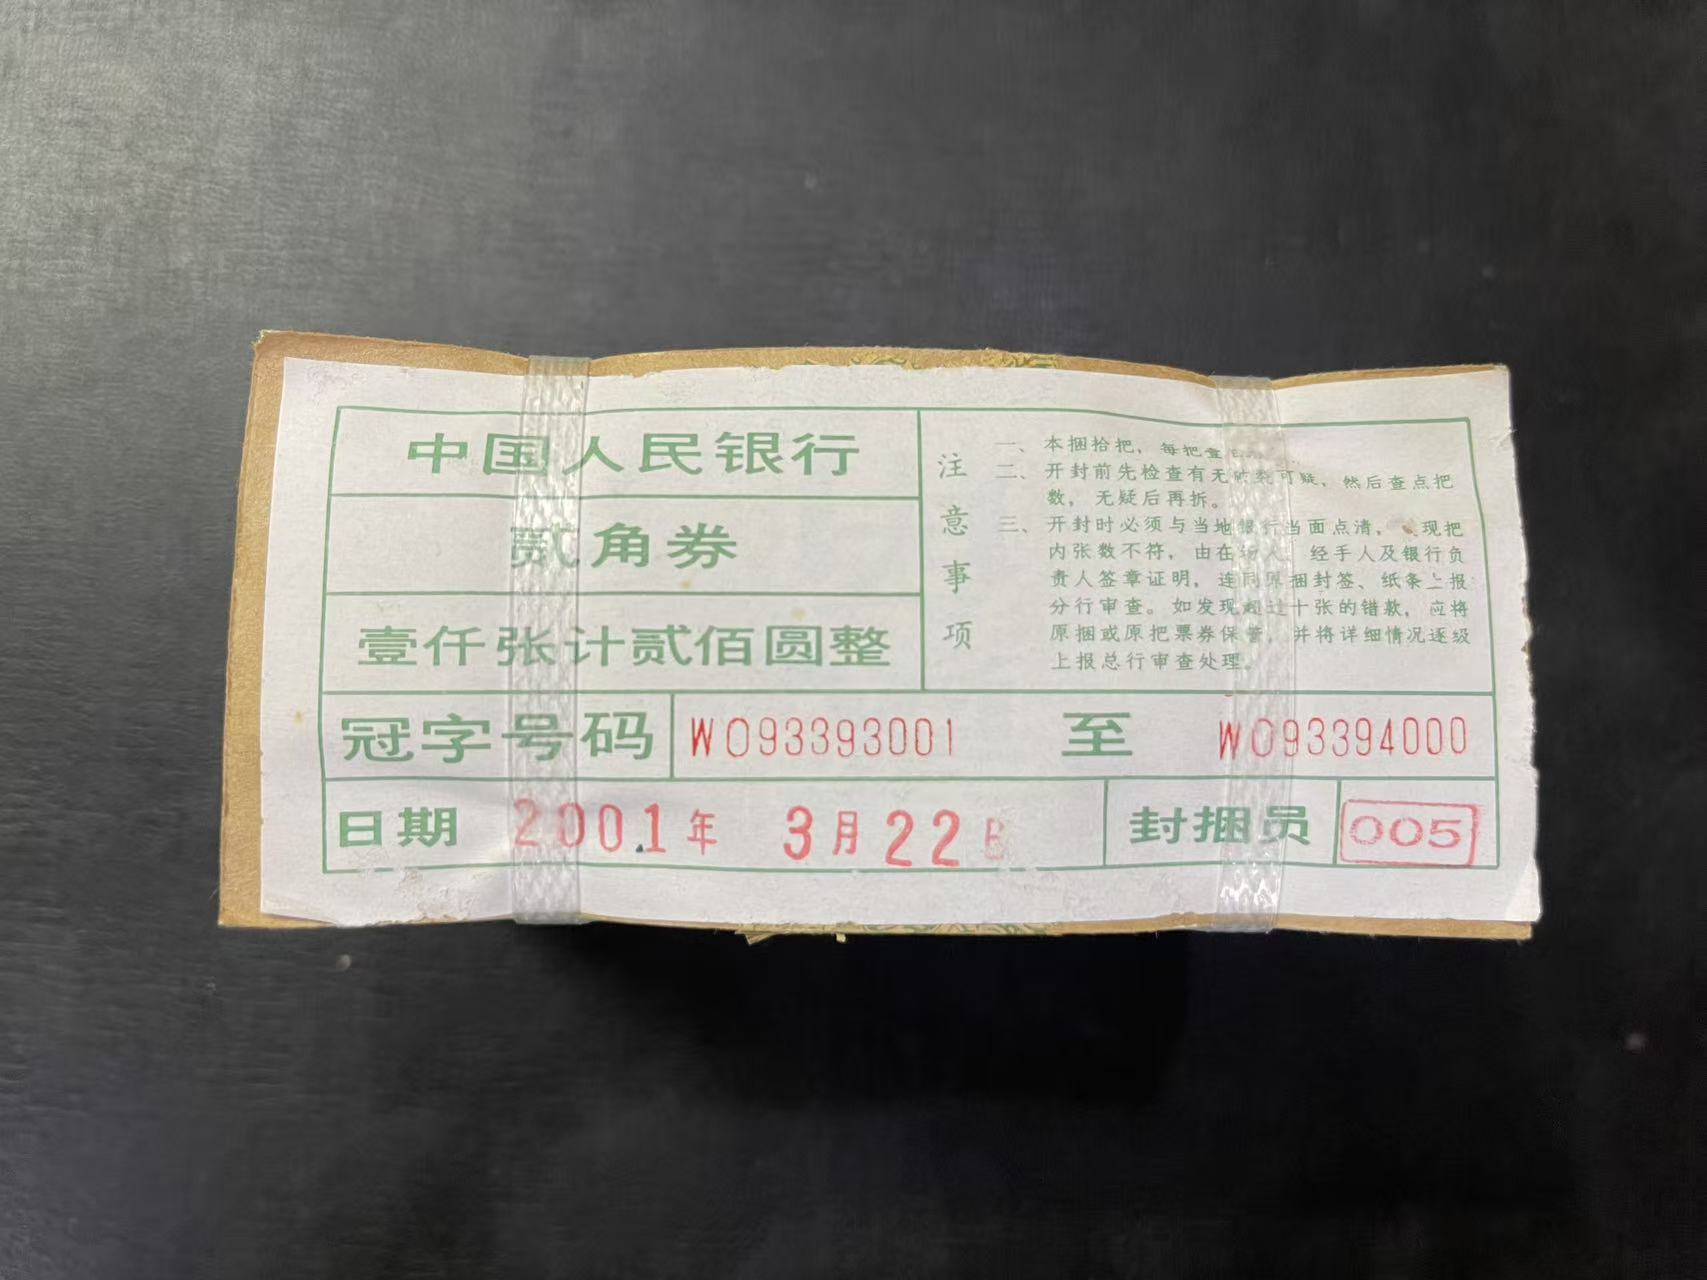 中国人民银行
贰角券
壹仟张计贰佰圆整
注意事项
一、本捆拾把，每把壹
二、开封前先检查有无破裂可疑，然后查点把
数，无疑后再拆。
三、开封时必须与当地银行当面点清，现把
内张数不符，由在场人、经手人及银行负
责人签章证明，连同原捆封签、纸条上报
分行审查。如发现超过十张的错款，应将
原捆或原把票券保管，并将详细情况逐级
上报总行审查处理。
冠字号码 WO93393001 至 WO93394000
日期 2001年 3月22日 封捆员 005